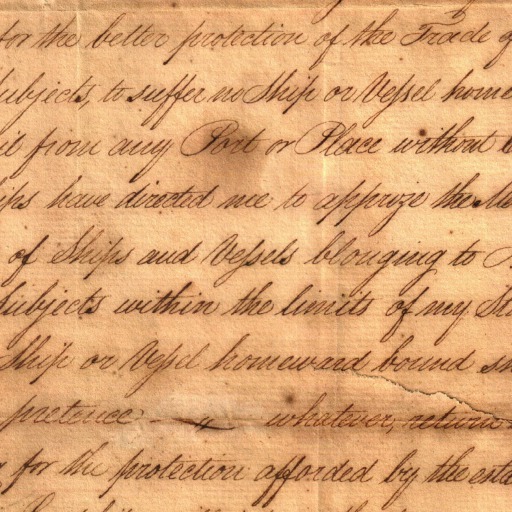 for the better protection of the Trade of
Subjects, to suffer no Ship or Vessel home
from any Port or Place without
have directed me to apprize the
of Ships and Vessels blonging to
Subjects within the limits of my
Ship or Vessel homeward bound
pretence whatever, return
for the protection afforded by the